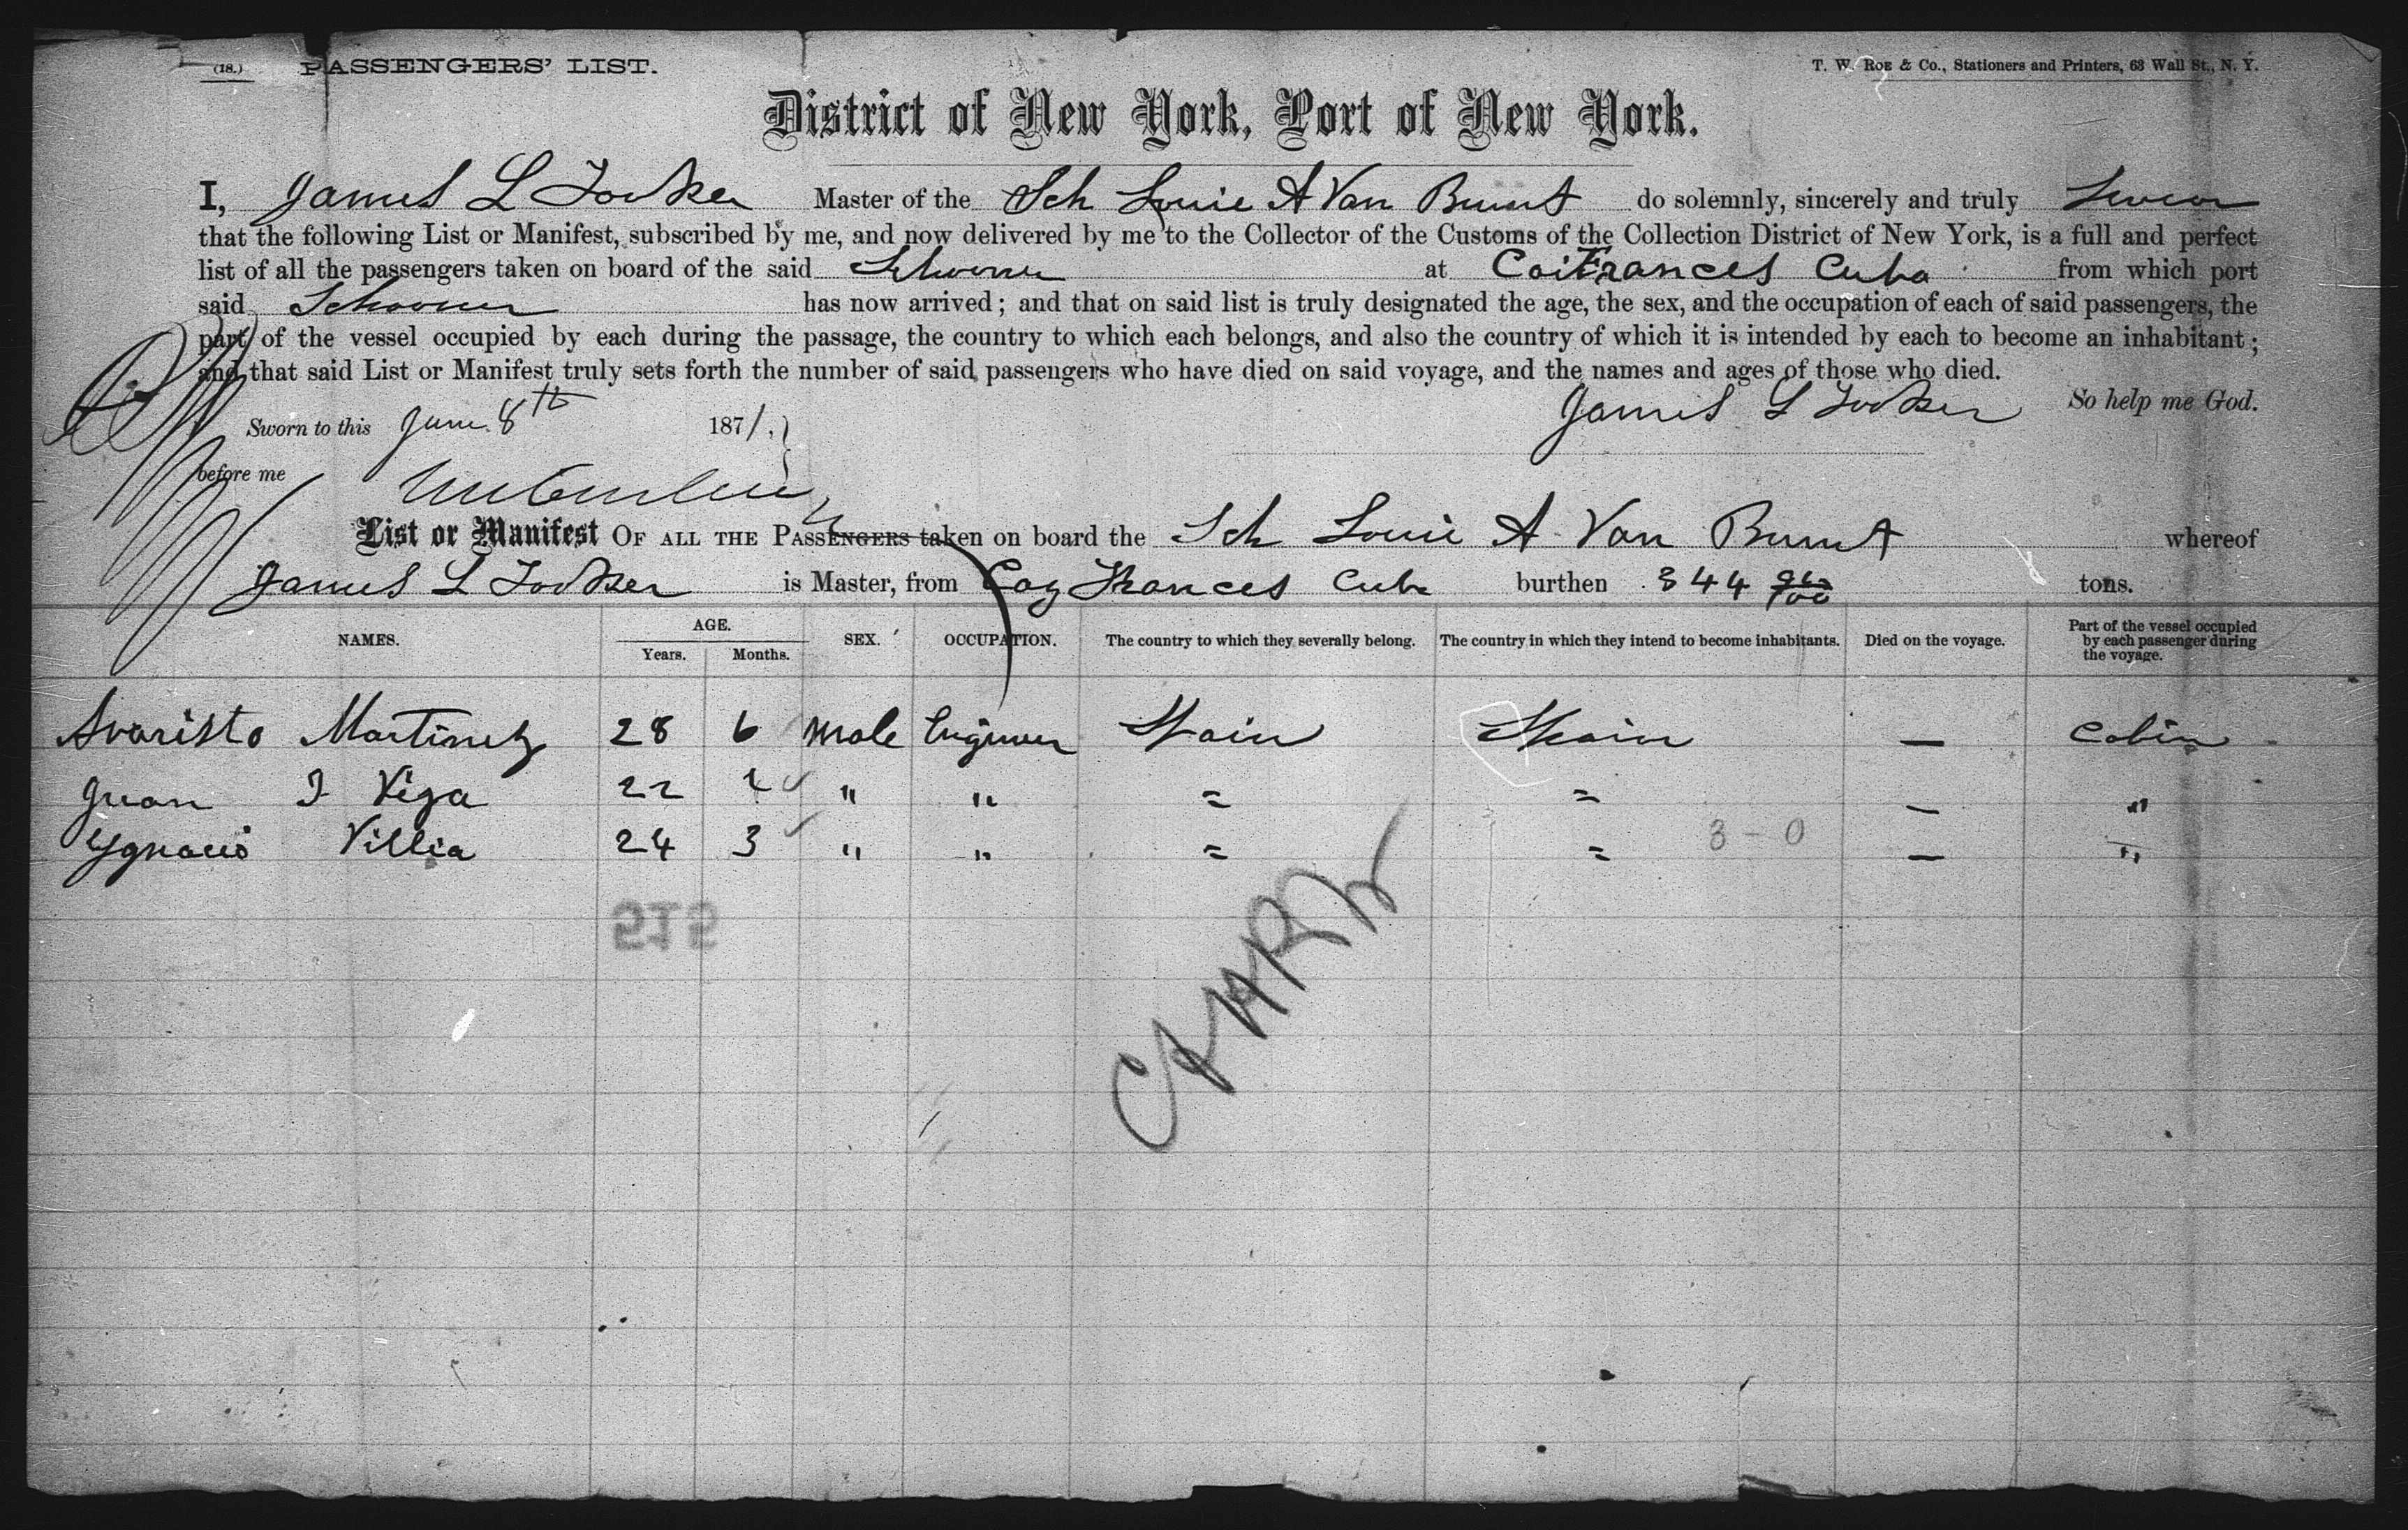 (18.) PASSENGERS' LIST.
T. W. ROE & Co., Stationers and Printers, 63 Wall St., N. Y.
District of New York, Port of New York.
I, James L Tooker Master of the Sch Louie A Van Brunt do solemnly, sincerely and truly Swear
that the following List or Manifest, subscribed by me, and now delivered by me to the Collector of the Customs of the Collection District of New York, is a full and perfect
list of all the passengers taken on board of the said Schooner at Cai Frances Cuba from which port
said Schooner has now arrived; and that on said list is truly designated the age, the sex, and the occupation of each of said passengers, the
part of the vessel occupied by each during the passage, the country to which each belongs, and also the country of which it is intended by each to become an inhabitant;
and that said List or Manifest truly sets forth the number of said passengers who have died on said voyage, and the names and ages of those who died.
James L Tooker So help me God.
Sworn to this June 8th 1871.
before me
List or Manifest OF ALL THE PASSENGERS taken on board the Sch Louie A Van Brunt whereof
James L Tooker is Master, from Cay Frances Cuba burthen 344 tons.
NAMES. AGE. Years. Months. SEX. OCCUPATION. The country to which they severally belong. The country in which they intend to become inhabitants. Died on the voyage. Part of the vessel occupied by each passenger during the voyage.
Avaristo Martinez 28 6 Male Engineer Spain Spain — Cabin
Juan J Viza 22 2 " " = = — "
Ygnacio Villia 24 3 " " = = — "
3-0
515